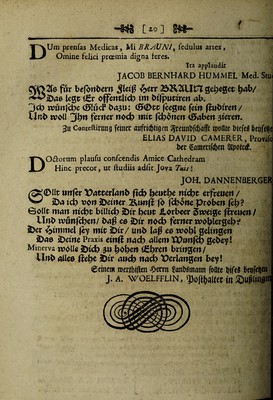 [ 20 ]
DUm prensas Medicas, Mi BRAUNI, sedulus artes,
Omine felici præmia digna feres.
Ita applaudit
JACOB BERNHARD HUMMEL Med. Stud
WAs für besondern Fleiß Herr BRAUN geheget hab/
Das legt Er offentlich im disputiren ab.
Ich wünsche Glück dazu: GOtt seegne sein studiren/
Und woll Ihn ferner noch mit schönen Gaben zieren.
Zu Contestirung seiner aufrichtigen Freundschafft wollte dieses beysetzen
ELIAS DAVID CAMERER, Proviso
der Camerischen Apoteck.
DOctorum plausu conscendis Amice Cathedram
Hinc precor, ut studiis adsit Jova Tuis!
JOH. DANNENBERGER
SOllt unser Vatterland sich heuthe nicht erfreuen/
Da ich von Deiner Kunst so schöne Proben seh?
Sollt man nicht billich Dir heut Lorbeer Zweige streuen/
Und wünschen/ daß es Dir noch ferner wohlergeh?
Der Himmel sey mit Dir/ und laß es wohl gelingen
Das Deine Praxis einst nach allem Wunsch gedey!
Minerva wolle Dich zu hohen Ehren bringen/
Und alles stehe Dir auch nach Verlangen bey!
Seinem werthisten Herrn Landsmann sollte dises beysetzen
J. A. WOELFFLIN, Posthalter in Dußlingen